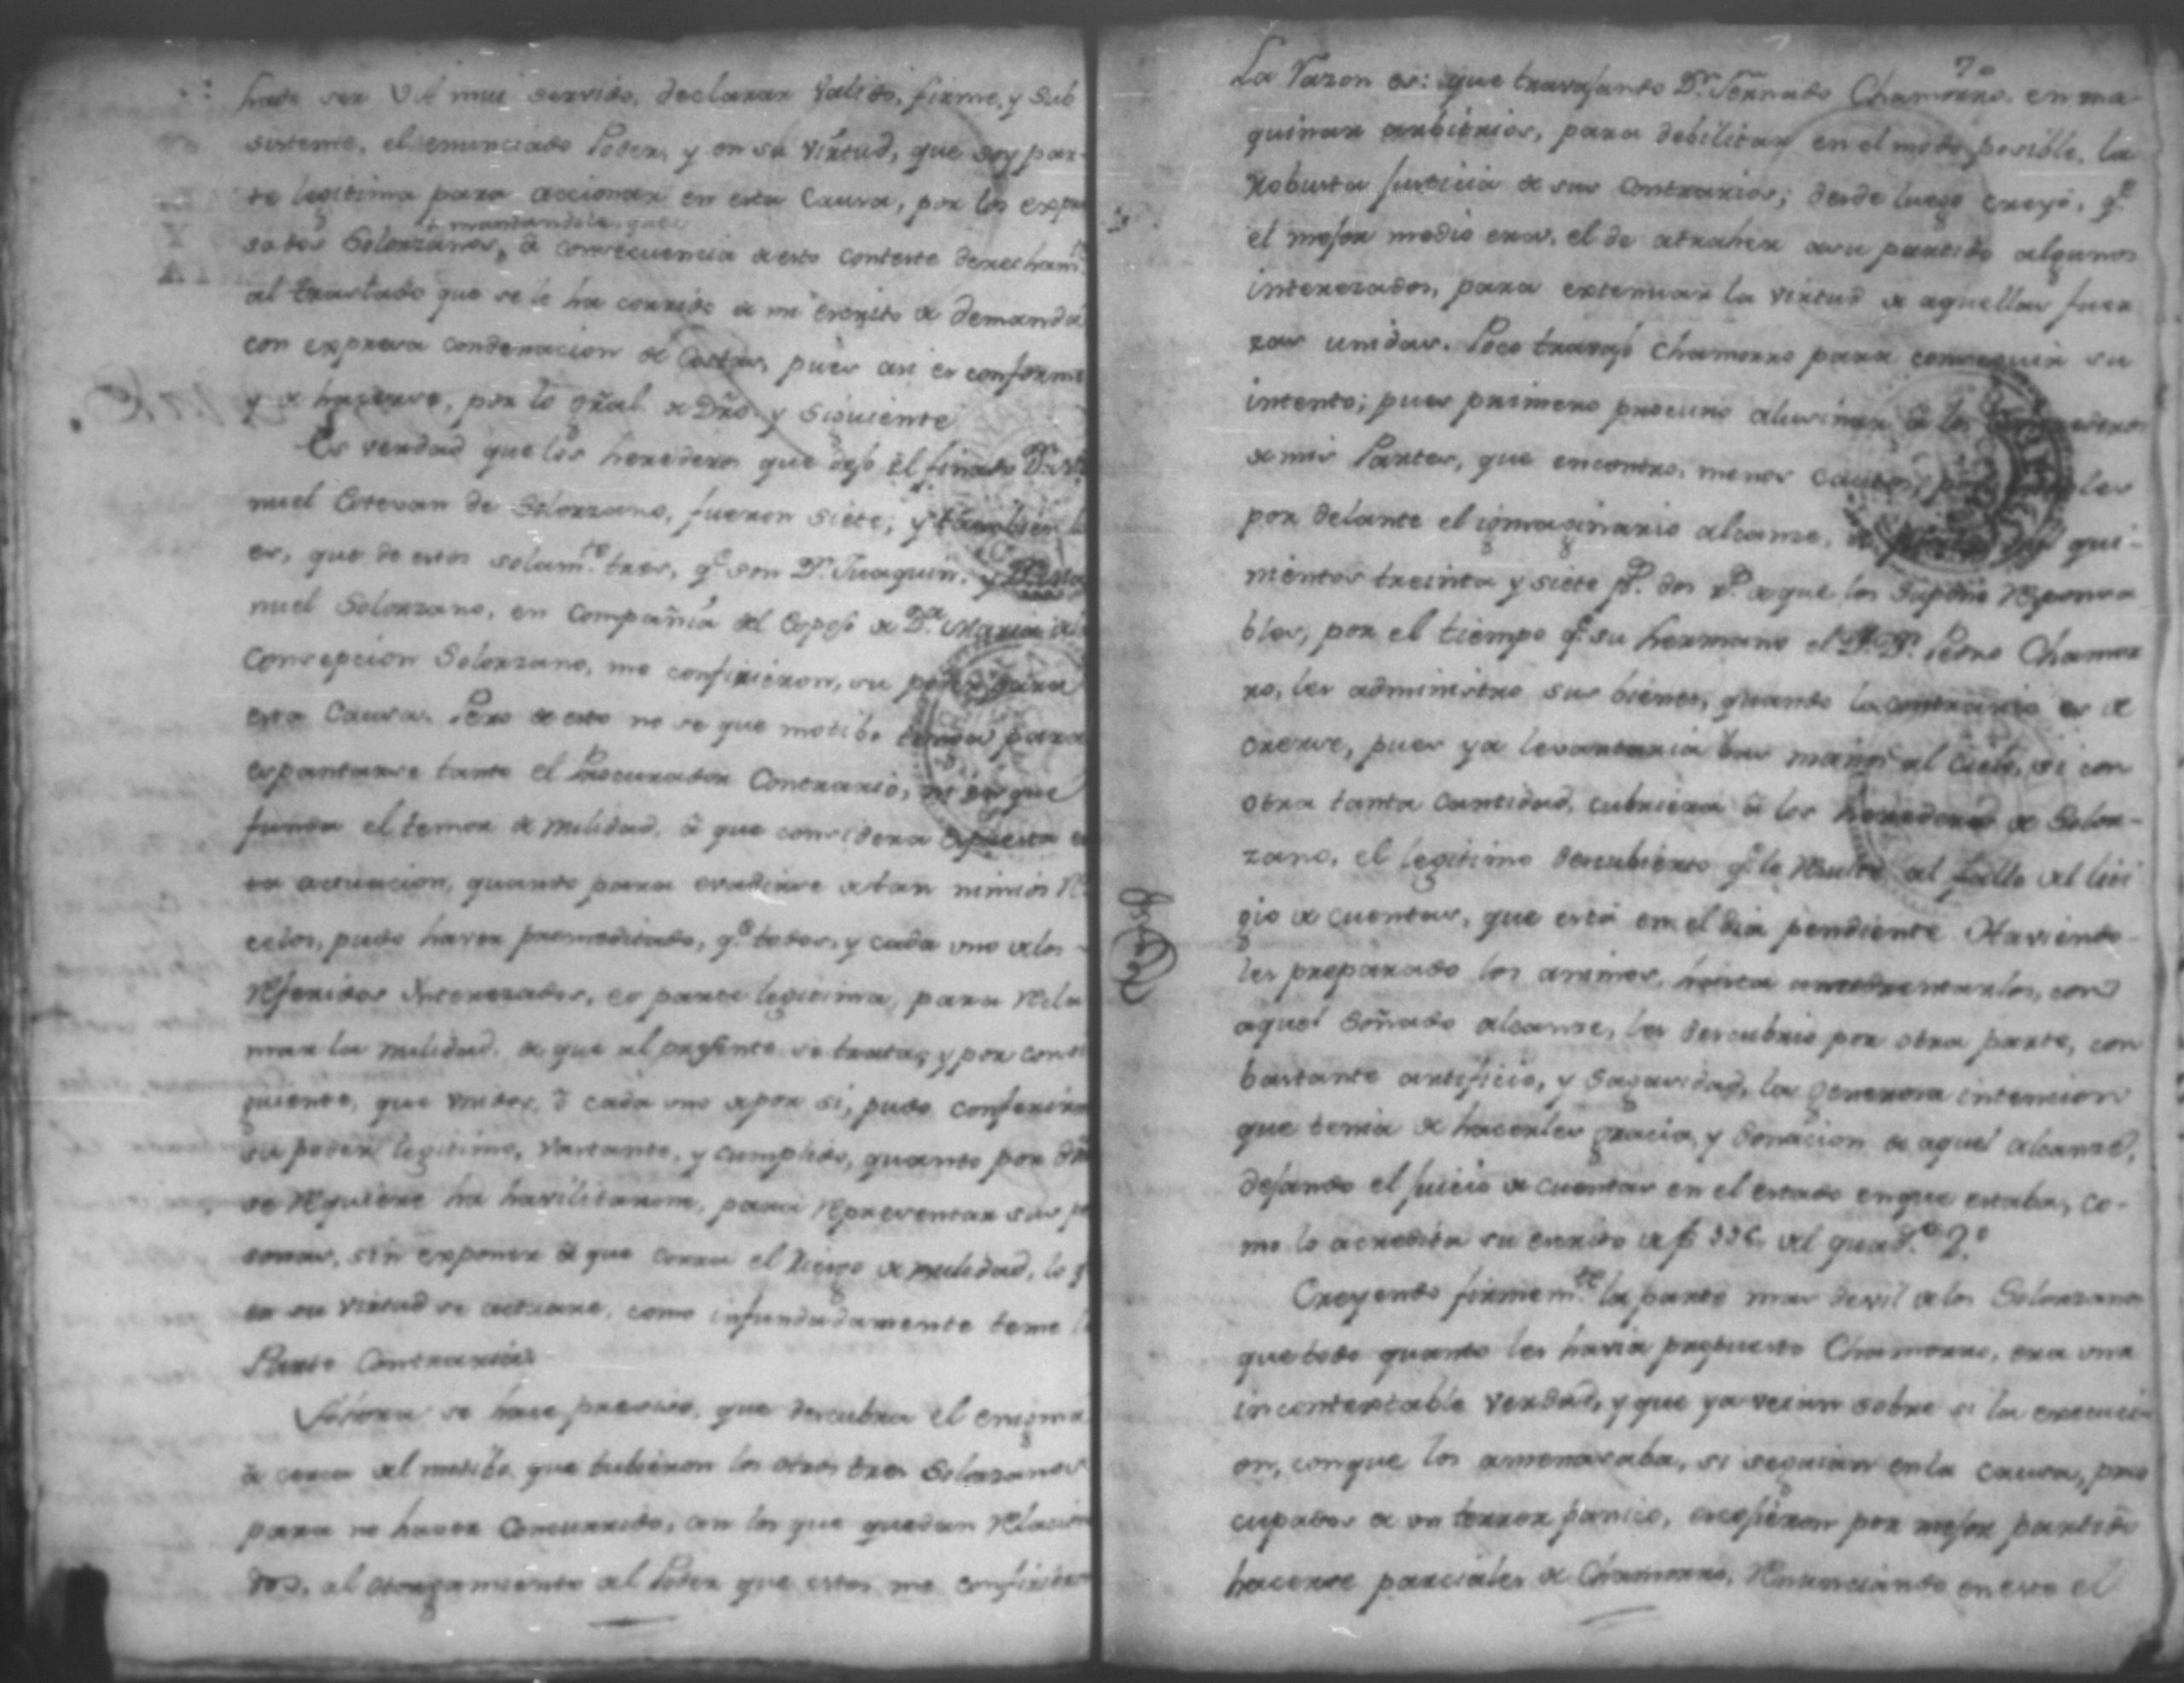 ser VA mui servido, declarar valido, firme, y sub
sistente, el enunciado Poder, y en su virtud, que soy par-
te legitima para accionar en esta Causa, por los expre
mandandole que
sados Solorzanos, à consecuencia de esto conteste derecham.te
al traslado que se le ha corrido de mi escrito de demanda
con expresa condenacion de Costas, pues asi es conforme
y de hacerse, por lo gral de Dro. y Siguiente
Es verdad que los herederos que dejo el finado Dn.
nuel Estevan de Solorzano, fueron siete; y tambien lo
es, que de estos solam.te tres, q.e son Dn. Juaquin, y Dn. Ma
nuel Solorzano, en Compañia del Esposo de Da. Maria de la
Concepcion Solorzano, me confirieron, su poder para
esta Causa. Pero de esto no se que motibo tenga para
espantarse tanto el Procurador Contrario, ni en que
funda el temor de nulidad, à que considera expuesta es
ta actuacion, quando para evadirse de tan nimios re
celos, pudo haver premeditado, q.e todos, y cada uno de los
referidos Interezados, es parte legitima, para recla
mar la nulidad, de que al presente se trata; y por consi
guiente, que unidos, ò cada uno de por si, pudo conferirme
su poder legitimo, vastante, y cumplido, quanto por dro
se requiere ha havilitarme, para representar sus per
sonas, sin exponer à que corra el riesgo de nulidad, lo q.e
en su virtud se actuare, como infundadamente teme la
Parte Contraria.
Ahora se hace preciso, que descubra el enigma
à cerca del motibo que tubieron los otros tres Solorzanos
para no haver Concurrido, con los que quedan relaciona
dos, al otorgamiento del Poder que estos me confirieron
70
La razon es: que travajando Dn. Fernando Chamorro, en ma-
quinar arbitrios, para debilitar en el modo posible, la
robusta justicia de sus Contrarios; desde luego creyó, q.e
el mejor medio era, el de atraher a su partido algunos
interezados, para extenuar la virtud de aquellas fuer
zas unidas. Poco travajó Chamorro para conseguir su
intento; pues primero procuro alusinar à los
de mis Partes, que encontro, menos cautos,
por delante el ymaginario alcanze, de qui-
nientos treinta y siete p.s dos r.s de que los supone responsa
bles, por el tiempo q.e su hermano el Dr. Dn. Pedro Chamor
ro, les administro sus bienes, quando lo contrario es de
creerse, pues ya levantaria las manos al Cielo, si con
otra tanta Cantidad, cubriera à los herederos de Solor-
zano, el legitimo descubierto q.e le resulte al fallo del liti
gio de cuentas, que està en el dia pendiente. Haviendo-
les preparado los animos, hasta amedrentarlos, con
aquel soñado alcanze, les descubrio por otra parte, con
bastante artificio, y sagasidad, la generosa intencion
que tenia de hacerles gracia, y donacion de aquel alcanze,
dejando el juicio de cuentas en el estado enque estaba, co-
mo lo acredita su escrito de f del quad.no 2.o
Creyendo firmem.te la parte mas devil de los Solorzanos
que todo quanto les havia propuesto Chamorro, era una
incontextable verdad, y que ya veian sobre si la execuci
on, conque los amenasaba, si seguian en la causa, preo
cupados de un terror panico, escojieron por mejor partido
hacerse parciales de Chamorro, renunciando en esto el